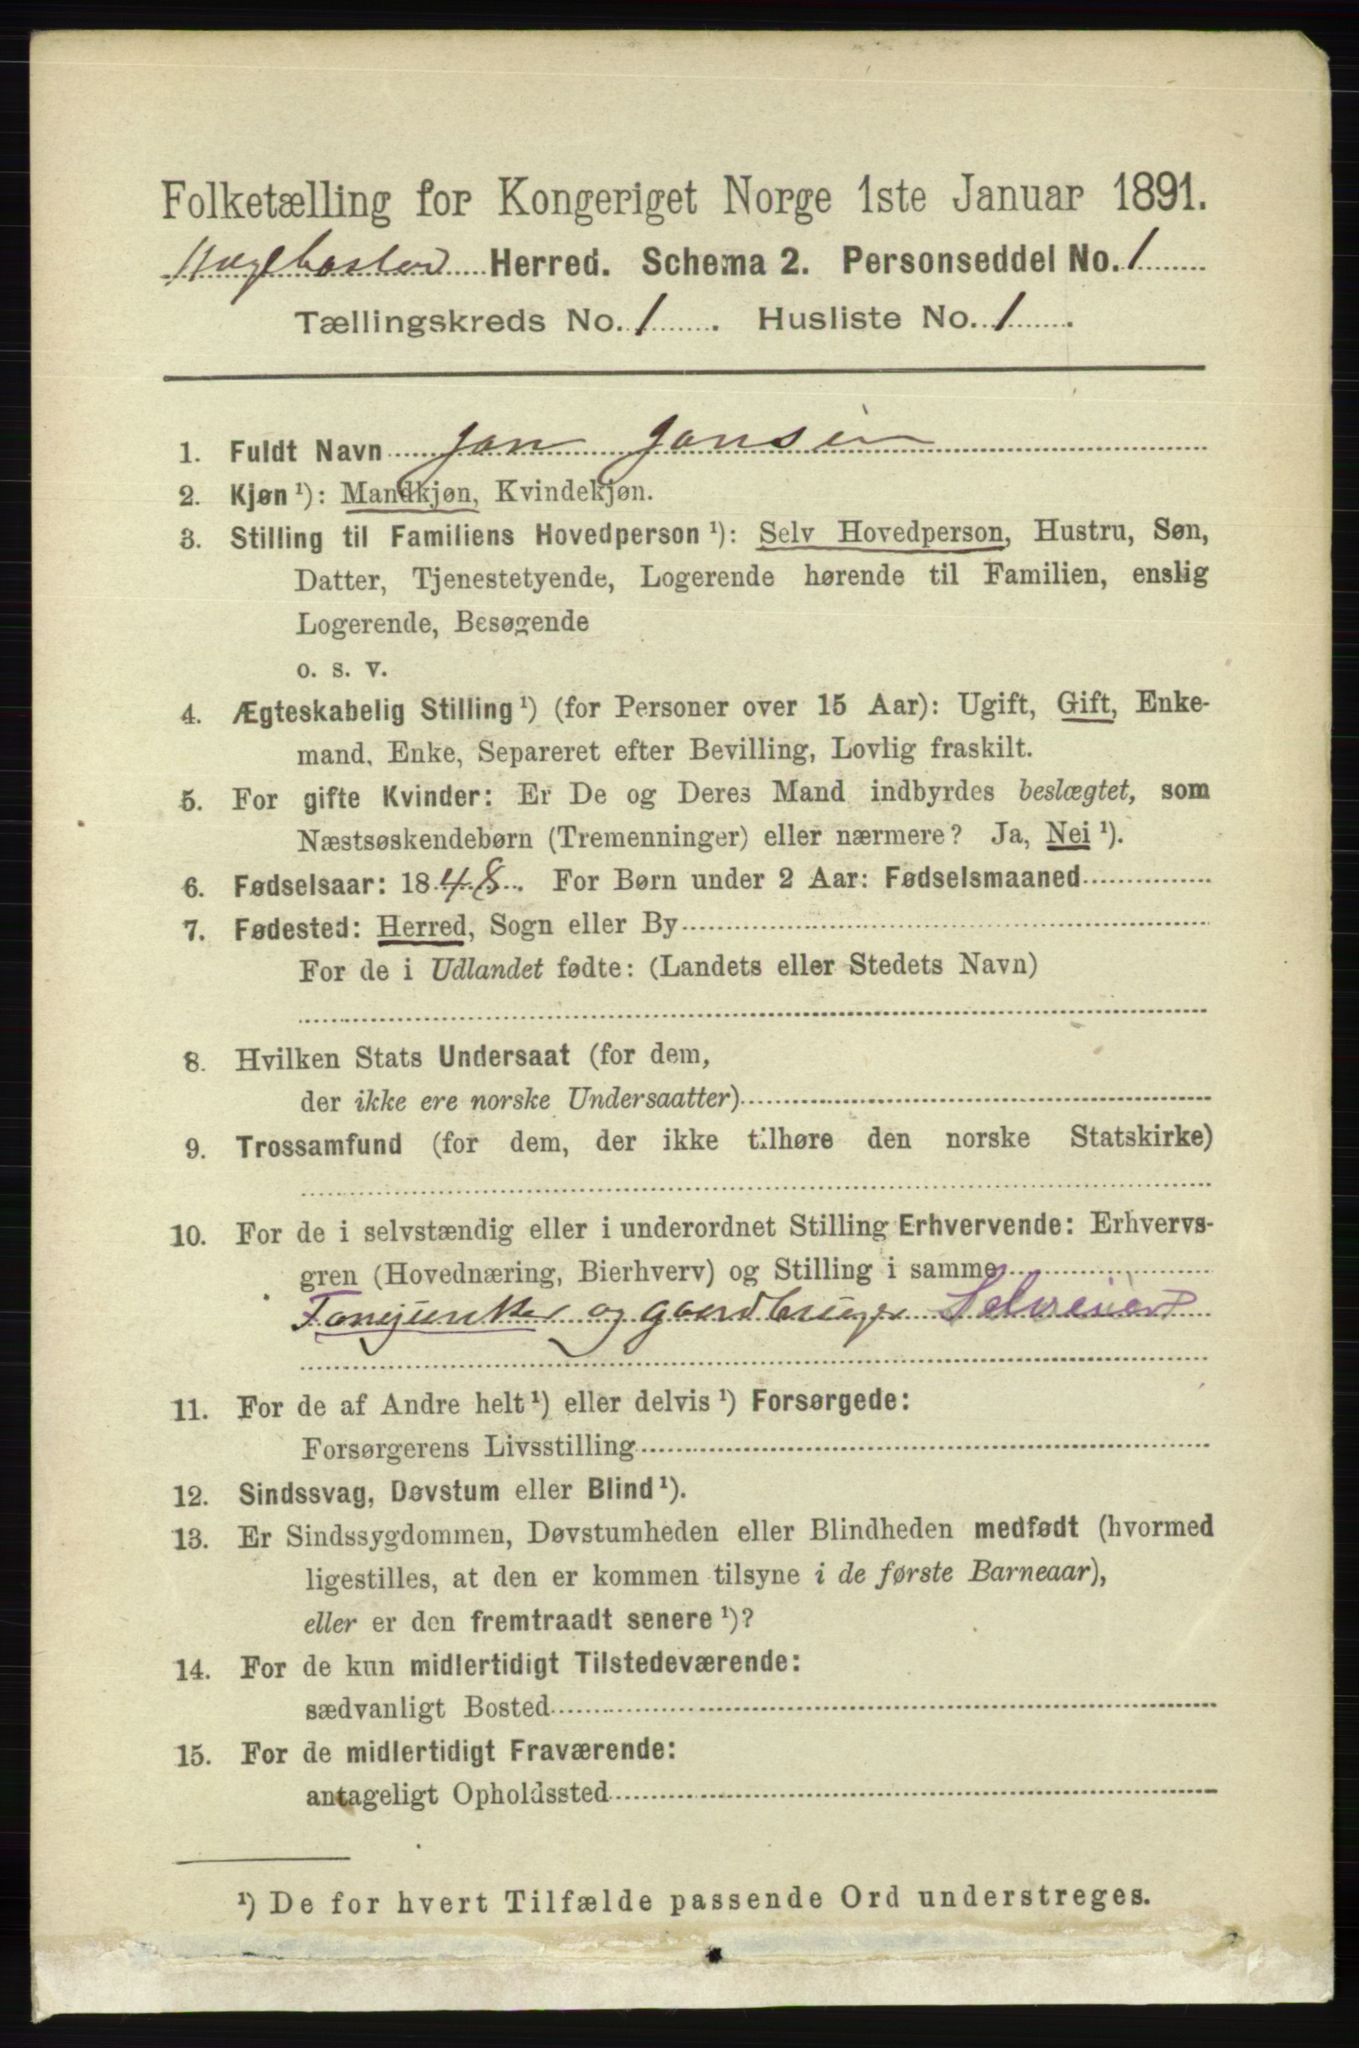 Folketælling for Kongeriget Norge 1ste Januar 1891.
Hægebostad Herred. Schema 2. Personseddel No. 1
Tællingskreds No. 1. Husliste No. 1.
1. Fuldt Navn Jon Jonsen
2. Kjøn ¹): Mandkjøn, Kvindekjøn.
3. Stilling til Familiens Hovedperson ¹): Selv Hovedperson, Hustru, Søn,
Datter, Tjenestetyende, Logerende hørende til Familien, enslig
Logerende, Besøgende
o. s. v.
4. Ægteskabelig Stilling ¹) (for Personer over 15 Aar): Ugift, Gift, Enke-
mand, Enke, Separeret efter Bevilling, Lovlig fraskilt.
5. For gifte Kvinder: Er De og Deres Mand indbyrdes beslægtet, som
Næstsøskendebørn (Tremenninger) eller nærmere? Ja, Nei ¹).
6. Fødselsaar: 1848. For Børn under 2 Aar: Fødselsmaaned
7. Fødested: Herred, Sogn eller By
For de i Udlandet fødte: (Landets eller Stedets Navn)
8. Hvilken Stats Undersaat (for dem,
der ikke ere norske Undersaatter)
9. Trossamfund (for dem, der ikke tilhøre den norske Statskirke)
10. For de i selvstændig eller i underordnet Stilling Erhvervende: Erhvervs-
gren (Hovednæring, Bierhverv) og Stilling i samme
og Gaardbruger Selveier
11. For de af Andre helt ¹) eller delvis ¹) Forsørgede:
Forsørgerens Livsstilling
12. Sindssvag, Døvstum eller Blind ¹).
13. Er Sindssygdommen, Døvstumheden eller Blindheden medfødt (hvormed
ligestilles, at den er kommen tilsyne i de første Barneaar),
eller er den fremtraadt senere ¹)?
14. For de kun midlertidigt Tilstedeværende:
sædvanligt Bosted
15. For de midlertidigt Fraværende:
antageligt Opholdssted
¹) De for hvert Tilfælde passende Ord understreges.